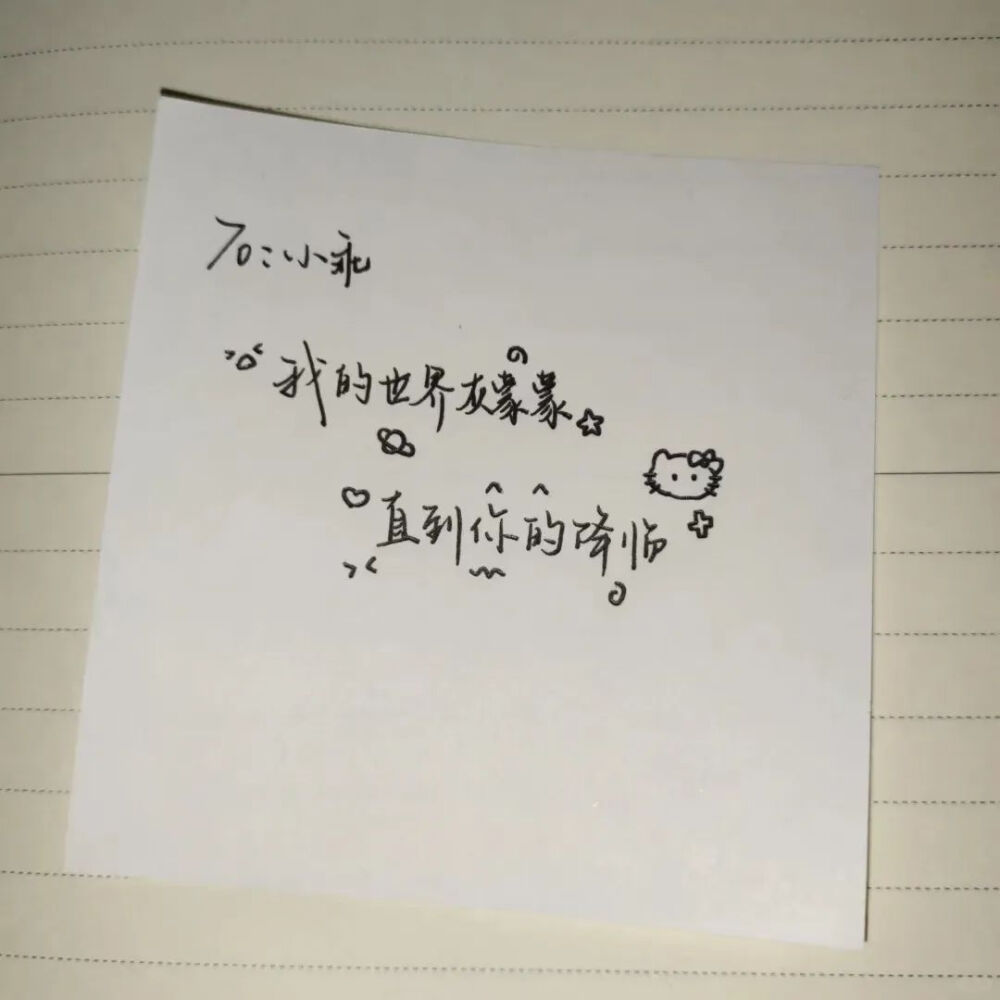 To:小乖
我的世界灰蒙蒙
直到你的降临